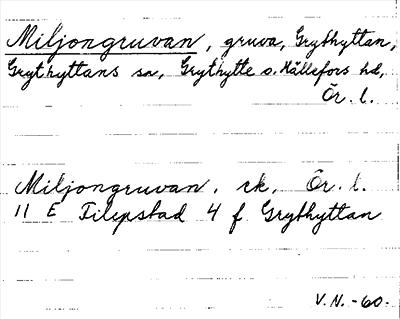 Miljongruvan, gruva, Grythyttan,
Grythyttans sn, Grythytte o. Hällefors hd,
Ör. l.
Miljongruvan, ek, Ör. l.
11 E Filipstad 4 f Grythyttan
V.N. -60.